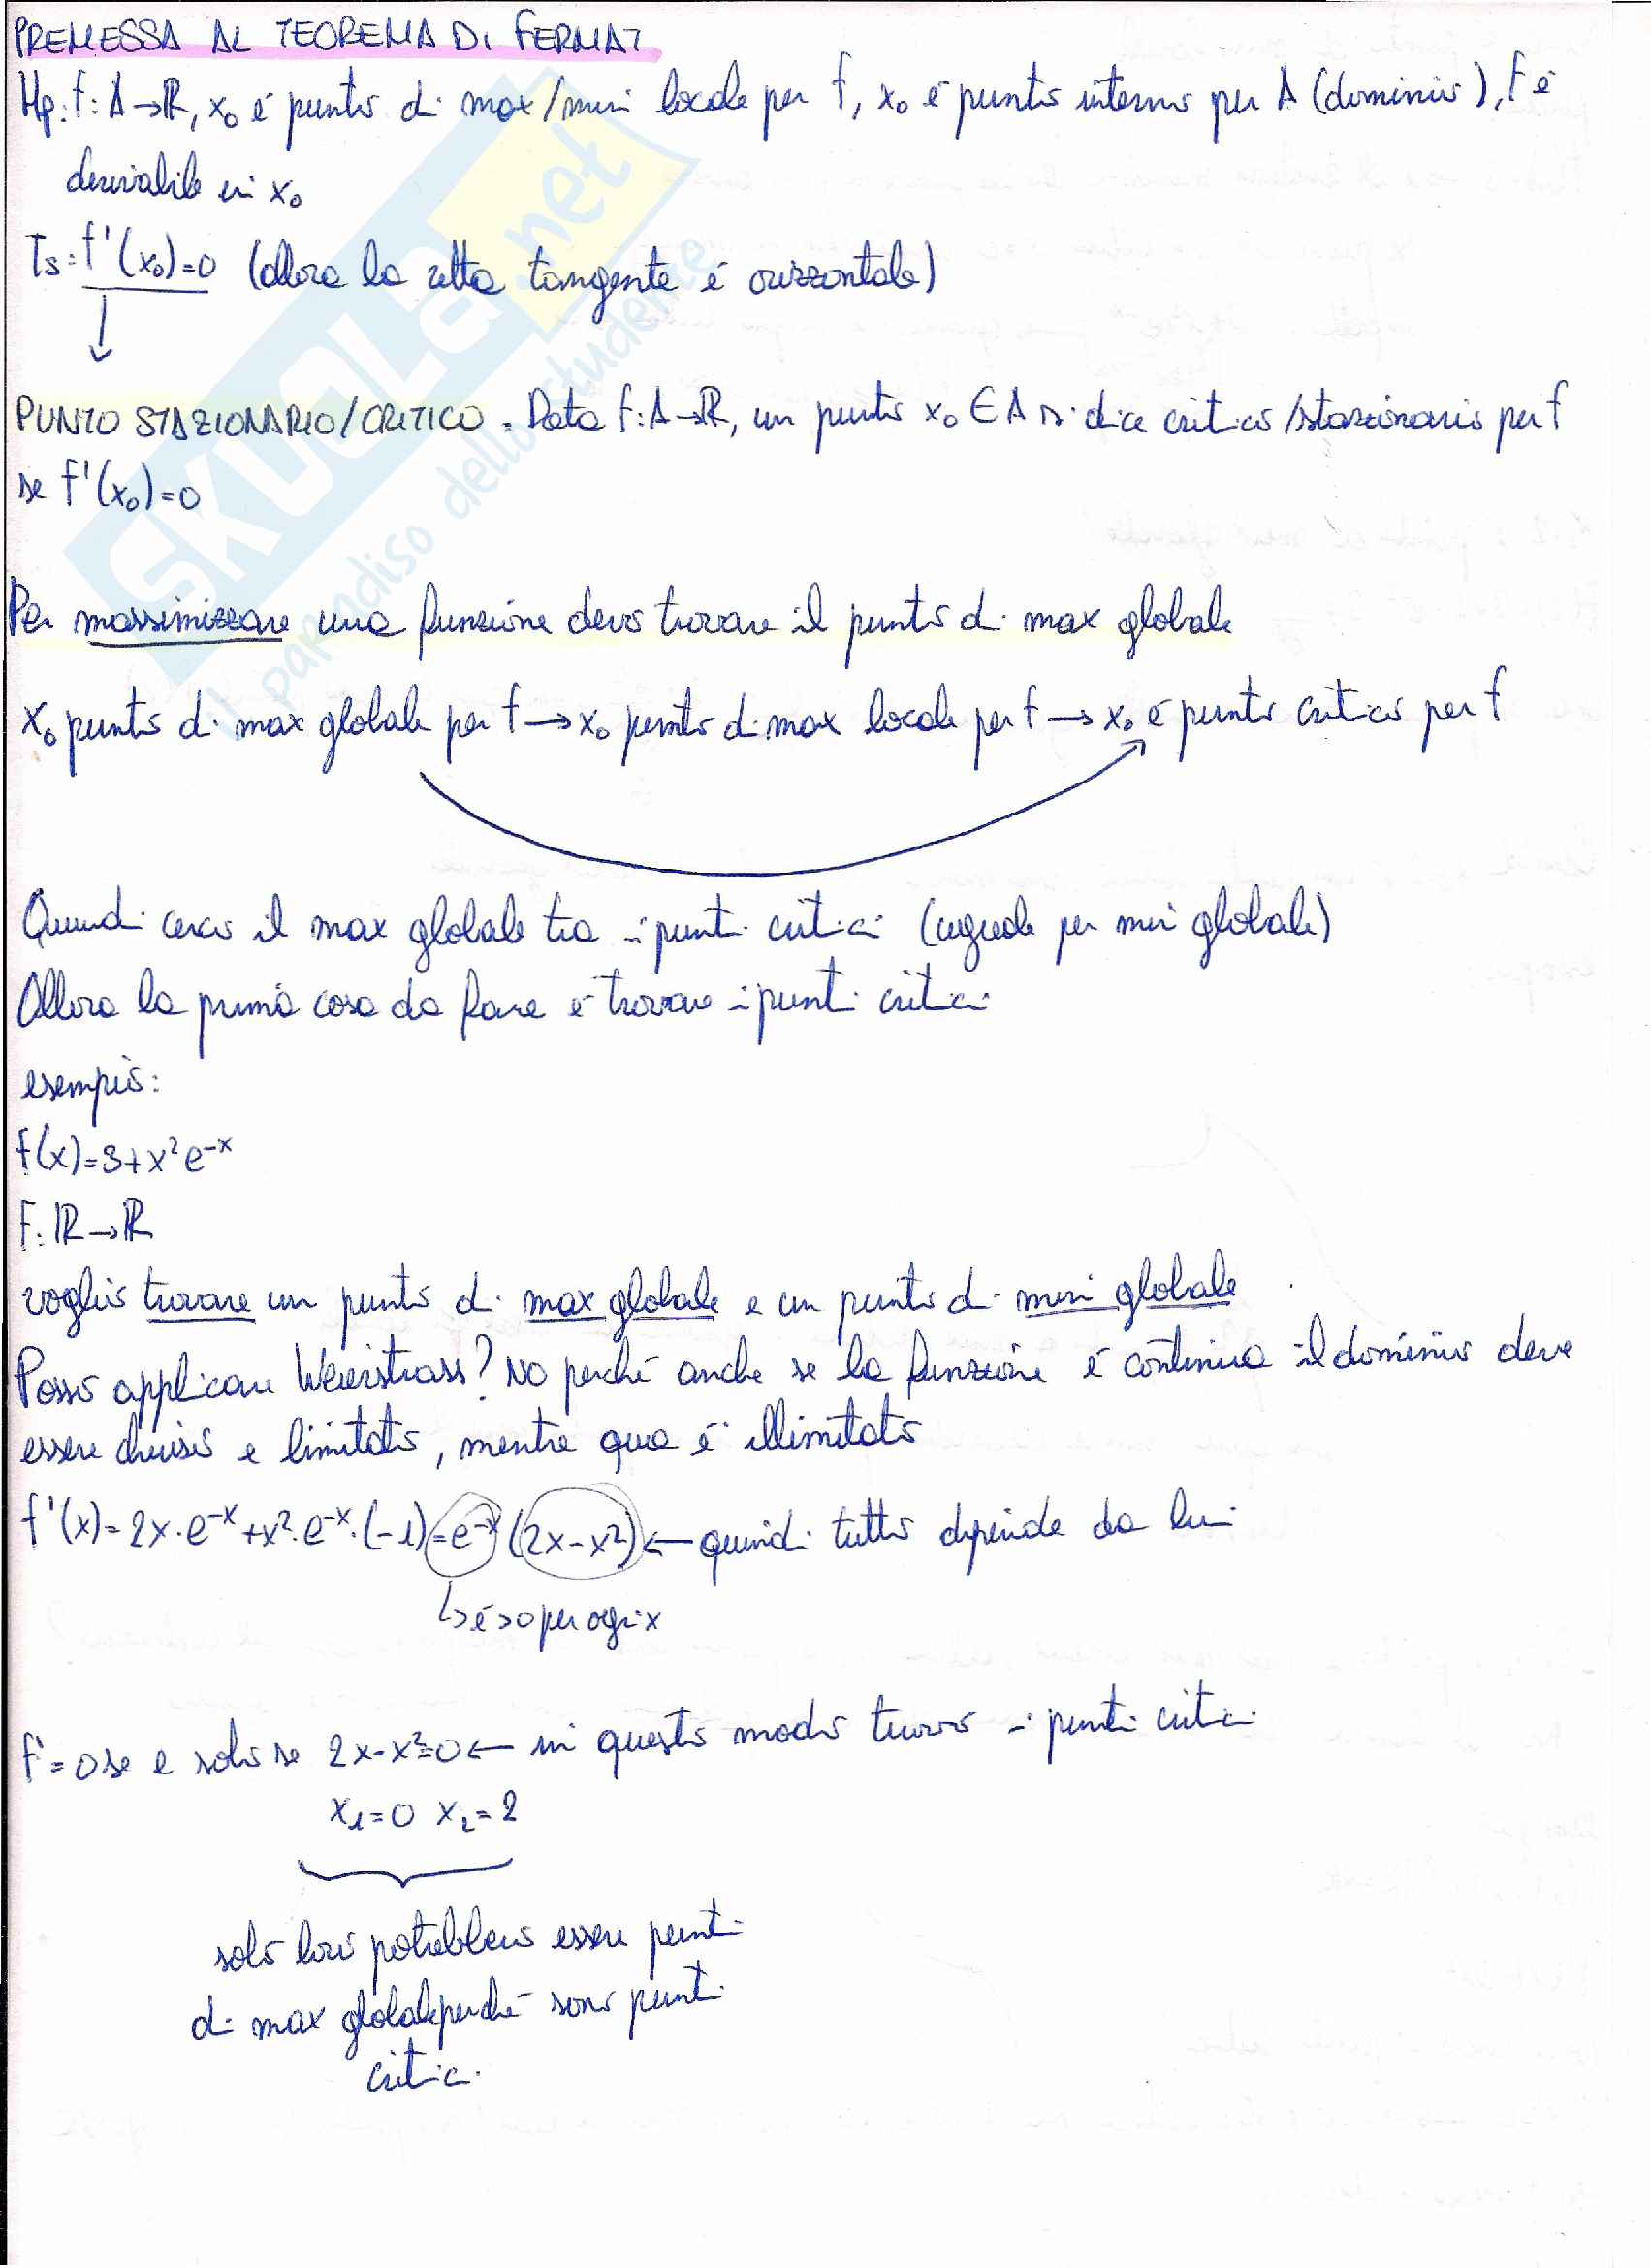 PREMESSA AL TEOREMA DI FERMAT
Hp: f: A→R, x₀ è punto di max/min locale per f, x₀ è punto interno per A (dominio), f è
derivabile in x₀
Ts: f'(x₀)=0 (allora la retta tangente è orizzontale)
PUNTO STAZIONARIO/CRITICO: Data f: A→R, un punto x₀ ∈ A si dice critico/stazionario per f
se f'(x₀)=0
Per massimizzare una funzione devo trovare il punto di max globale
x₀ punto di max globale per f → x₀ punto di max locale per f → x₀ è punto critico per f
Quindi cerco il max globale tra i punti critici (uguale per min globale)
Allora la prima cosa da fare è trovare i punti critici
esempio:
f(x)=3+x²e⁻ˣ
F: R→R
voglio trovare un punto di max globale e un punto di min globale
Posso applicare Weierstrass? No perché anche se la funzione è continua il dominio deve
essere chiuso e limitato, mentre qua è illimitato
f'(x)=2x·e⁻ˣ+x²·e⁻ˣ·(-1)=e⁻ˣ(2x-x²) ← quindi tutto dipende da lui
↳ è >0 per ogni x
f'=0 se e solo se 2x-x²=0 ← in questo modo trovo i punti critici
x₁=0 x₂=2
solo loro potrebbero essere punti
di max globale perché sono punti
critici
SKUOLA.net
il paradiso dello studente